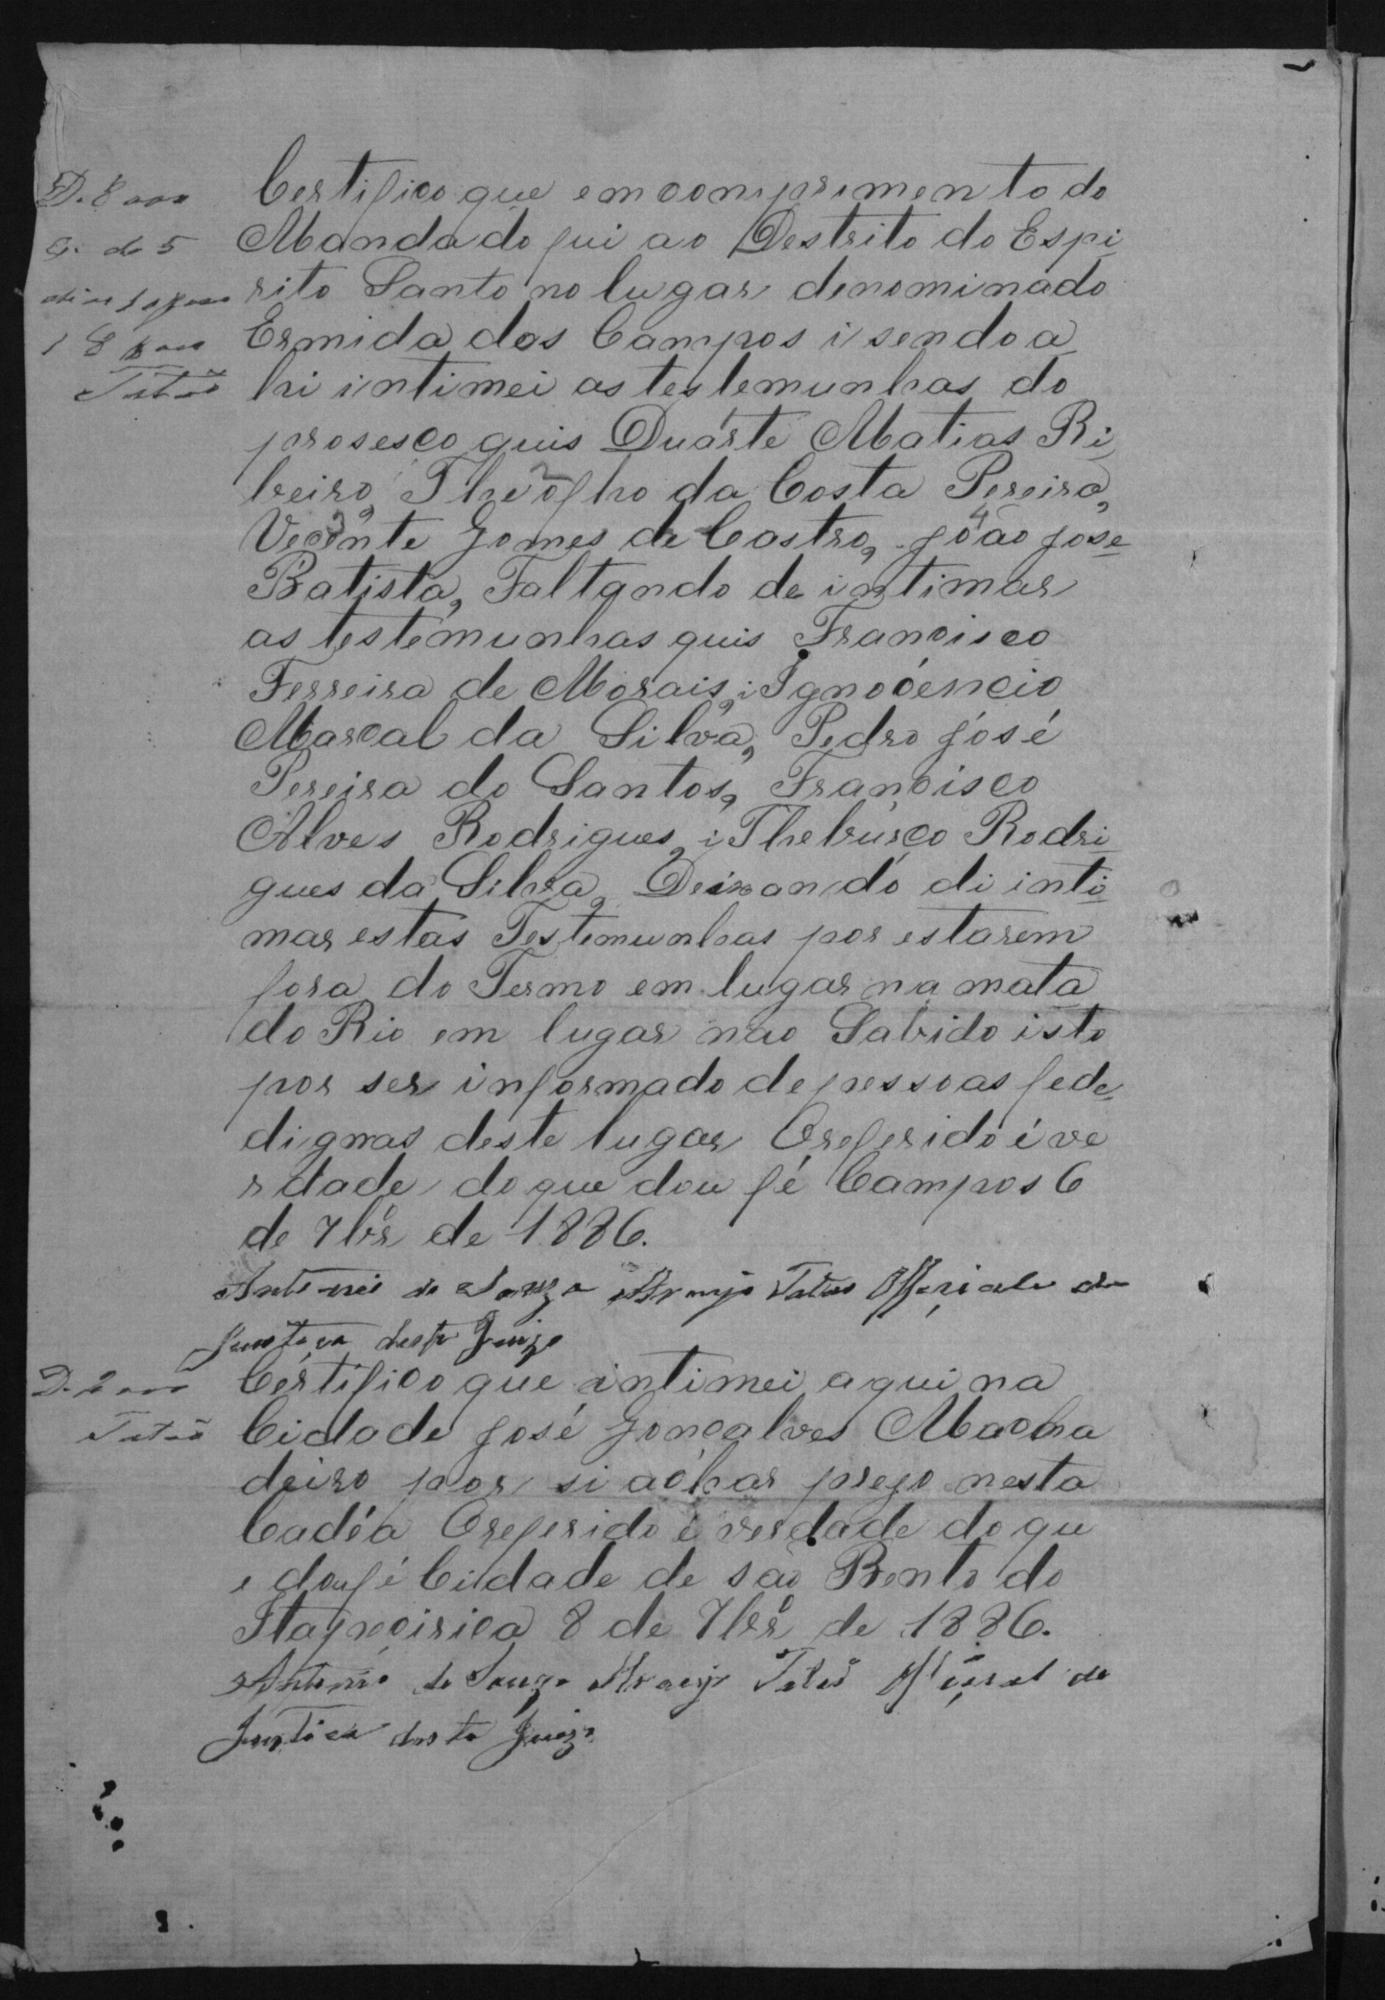 D. 8000
Certifico que em comprimento do
Mandado fui ao Destrito do Espi
G. de 5
rito Santo no lugar denominado
Ermida dos Campos i sendo a
Tatão
hi intimei as testemunhas do
prosesco quis Duarte Matias Ri
beiro, Theofho da Costa Pereira,
Vecente Gomes de Castro, João Jose
Batista, Faltando de intimar
as testemunhas quis Francisco
Ferreira de Morais, i Ignoóencio
Marcal da Silva, Pedro José
Pereira do Santos, Francisco
Alves Rodrigues, i Theburço Rodri
gues da Silva, Deixando di inti
mar estas Testemunhas por estarem
fora do Termo em lugar na mata
do Rio em lugar nao Sabido isto
por ser informado de pessoas fede
dignas deste lugar Oreferido é ve
rdade do que dou fé Campos 6
de 7br̃ de 1886.
Antonio de Souza Araujo Tatão Offeciale de
Justiça deste Juizo
D. 2000
Certifico que intimei aqui na
Tatão
Cidade José Gonçalves Macha
deiro por si achar prezo nesta
Cadéa Oreferido é verdade do qu
e dou fé Cidade de são Bento do
Itapecirica 8 de 7br̃ de 1886.
Antonio de Souza Araujo Tatão Oficial de
Justica deste Juizo